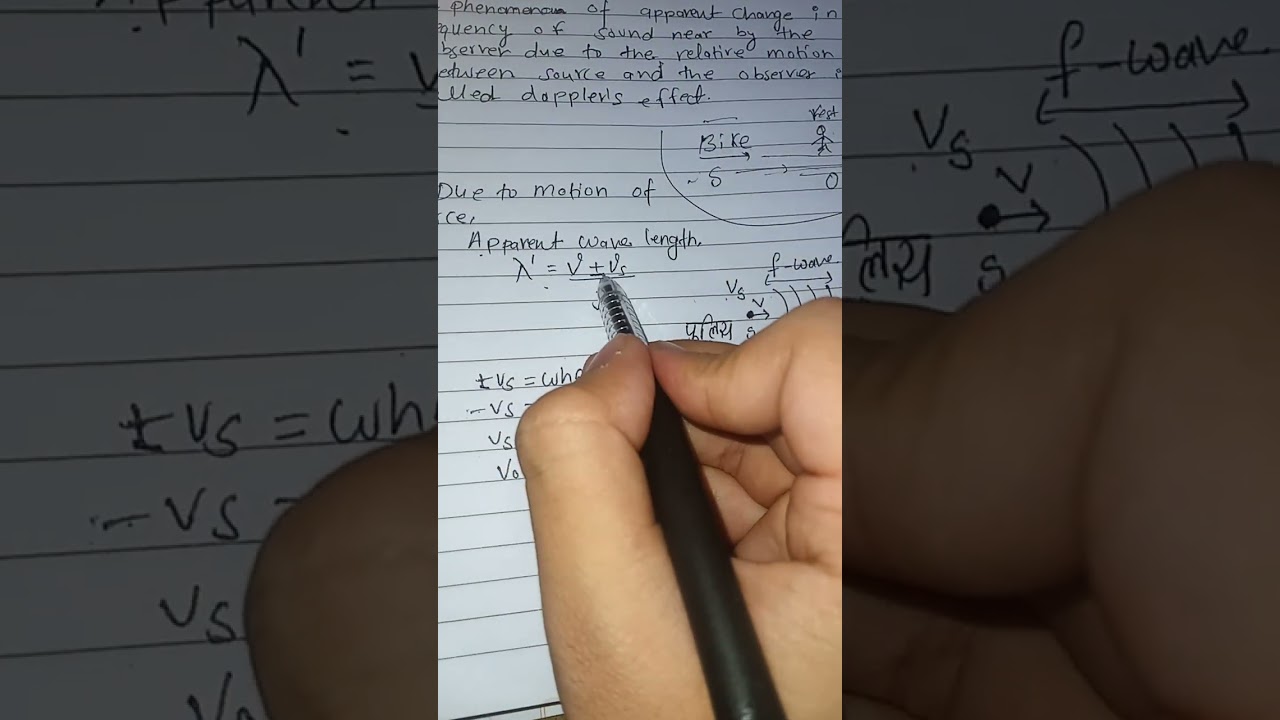 phenomenon of apparent change in
quency of sound near by the
bserver due to the relative motion
etween source and the observer
lled dappler's effect.
rest
Bike
S
O
Due to motion of
rce,
Apparent wave length.
λ' = v ± vs
f-wave
vs
v
पुलिस s
±vs = whe
-vs =
vs
vo